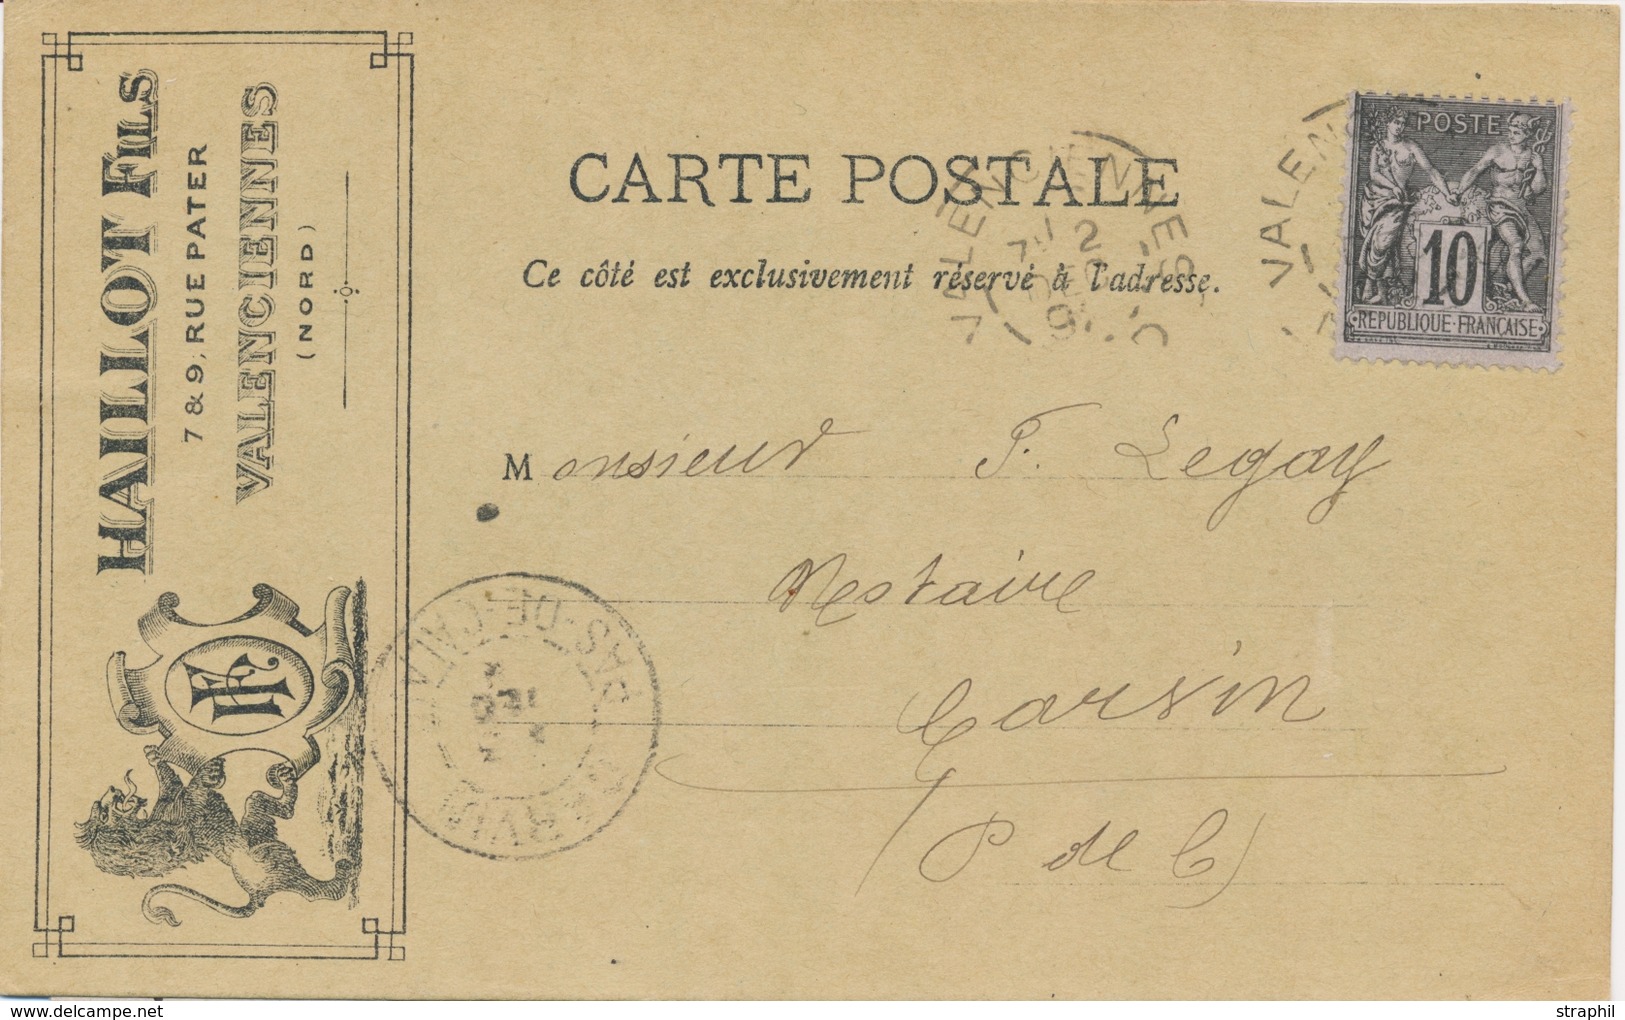 HAILLOT FILS
7 & 9, RUE PATER
VALENCIENNES
(NORD)
HF
CARTE POSTALE
Ce côté est exclusivement réservé à l'adresse.
VALENCIENNES
VALEN
POSTE
10
REPUBLIQUE FRANÇAISE
Monsieur F. Legay
Notaire
Carvin
(P de C)
PAS-DE-CALAIS
CARVIN
straphil